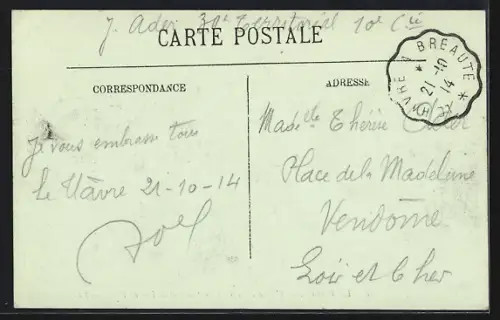 J. Ader 30e Territorial 10e Cie
CARTE POSTALE
BRÉAUTÉ
21 -10
14
CORRESPONDANCE
ADRESSE
Je vous embrasse tous
Le Hâvre 21-10-14
Joël
Madelle Thérèse Ader
Place de la Madeleine
Vendôme
Loir et Cher